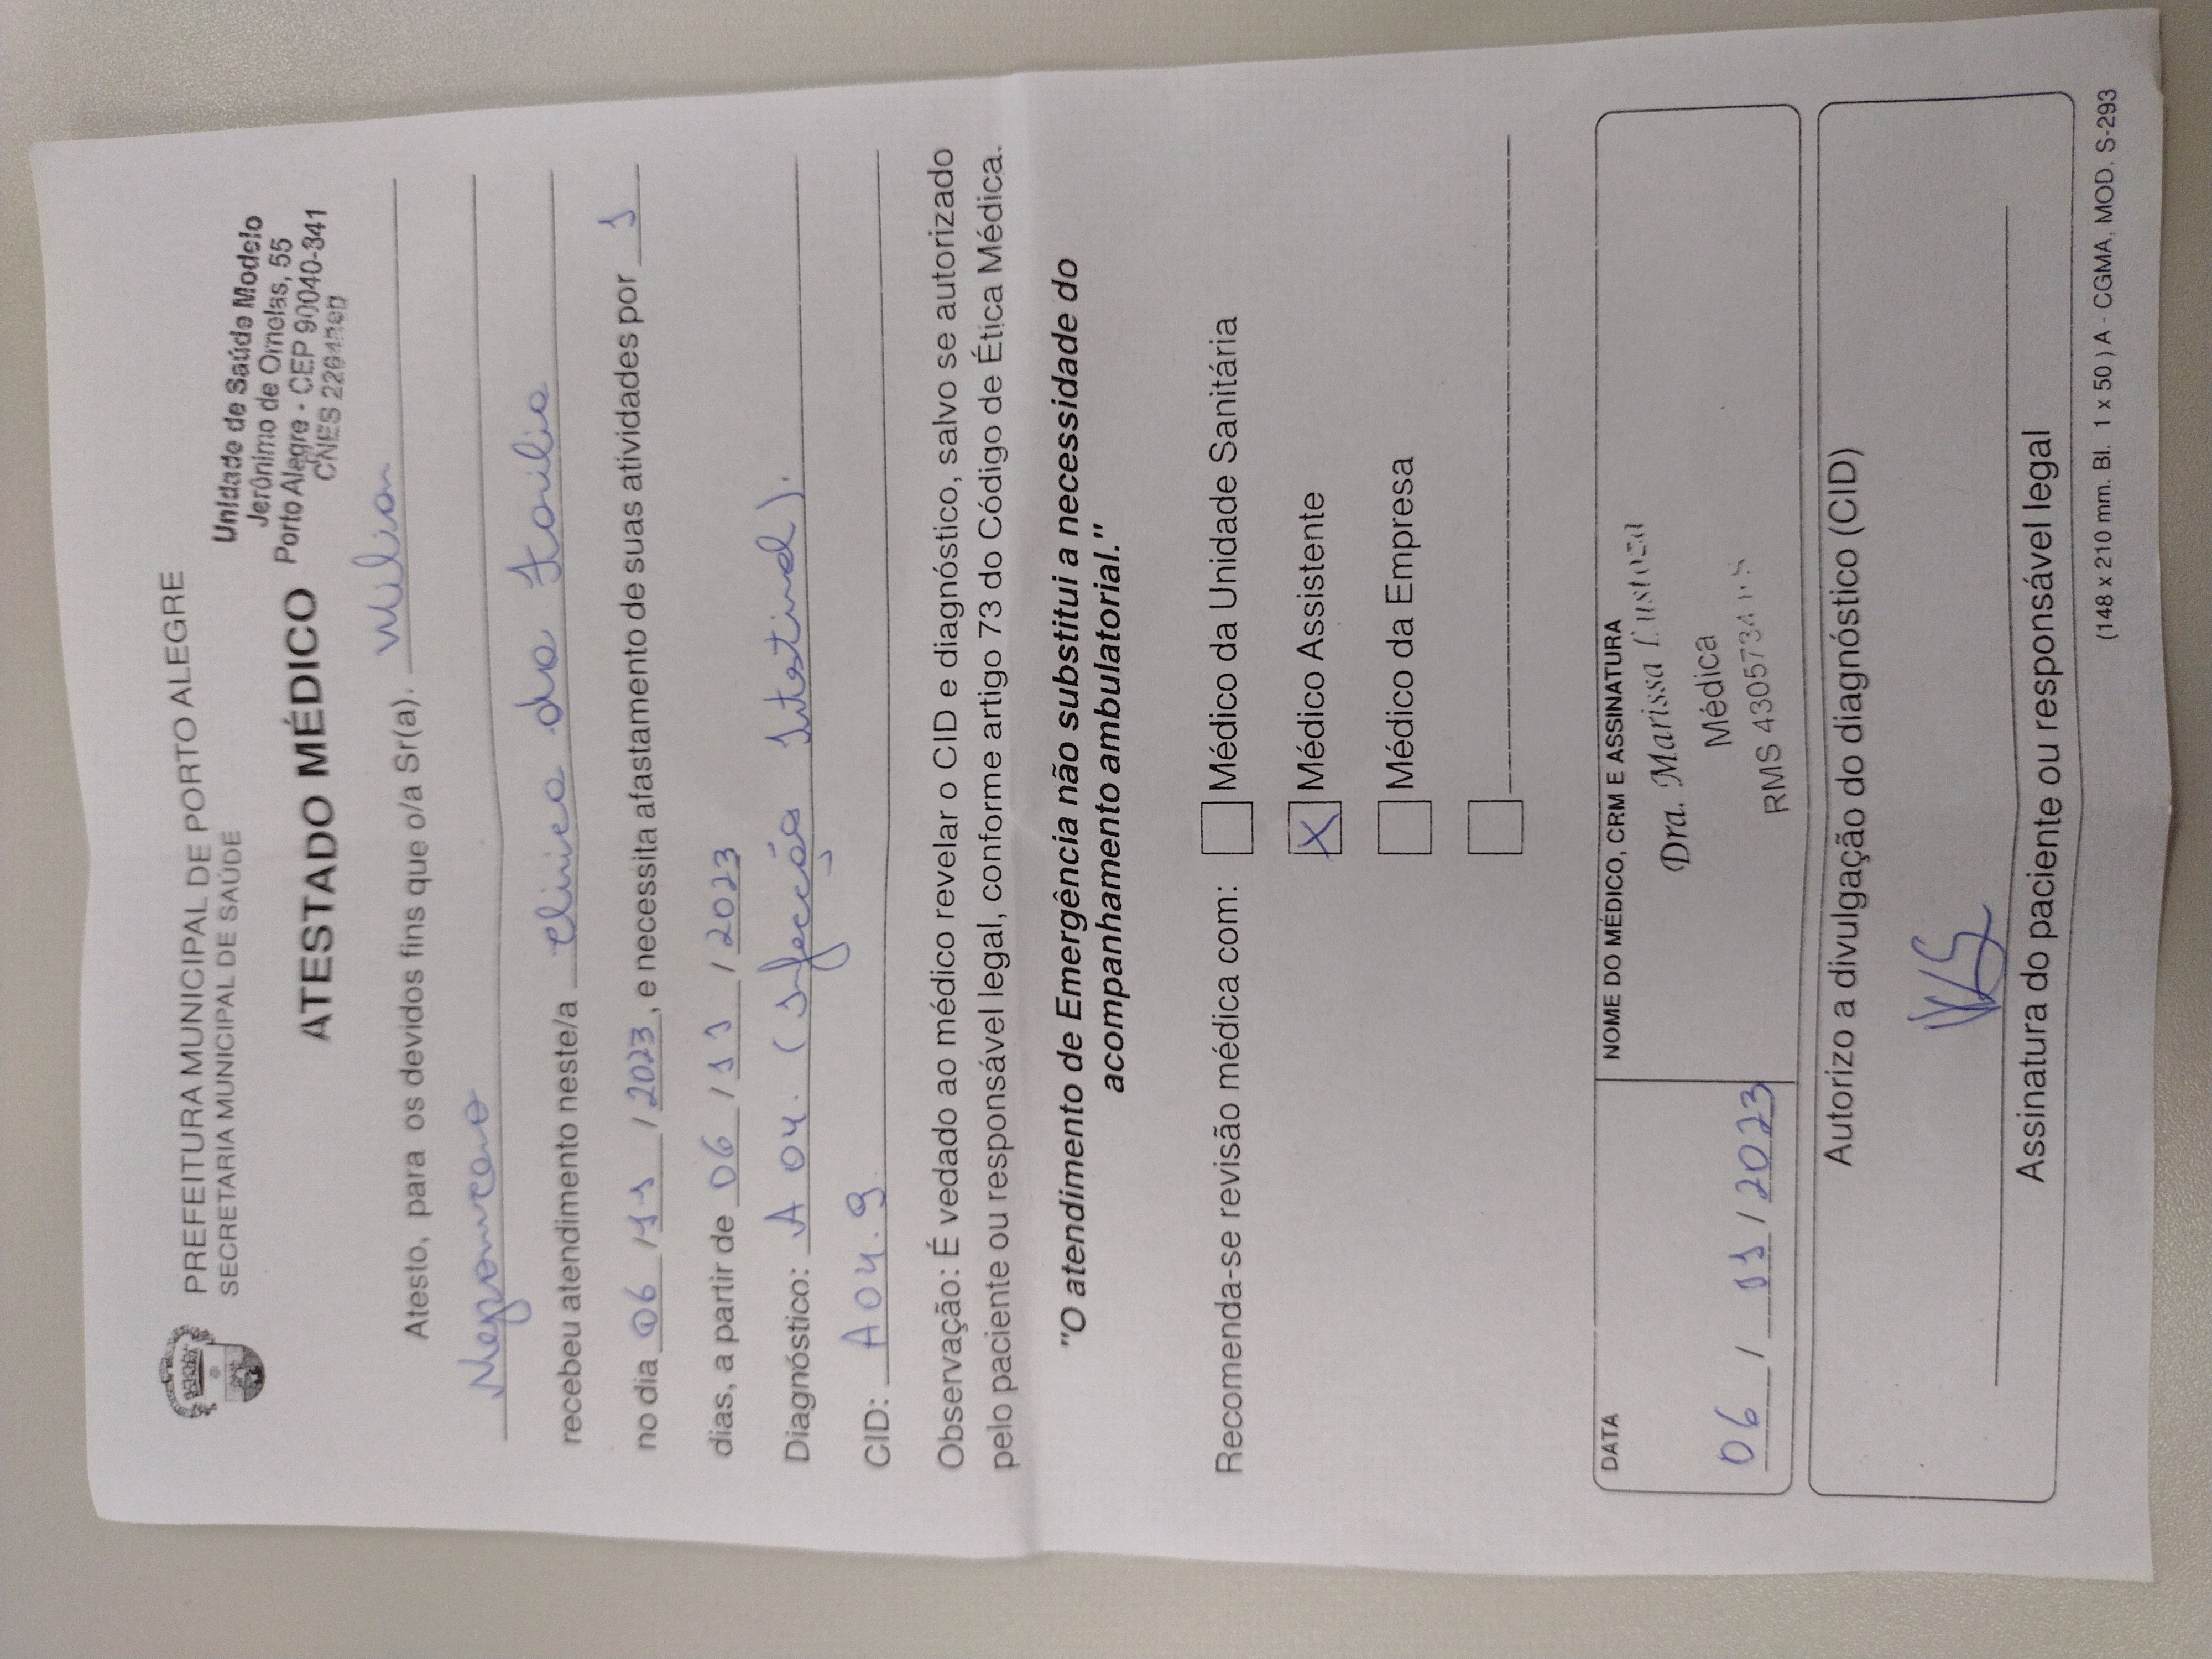 PREFEITURA MUNICIPAL DE PORTO ALEGRE
SECRETARIA MUNICIPAL DE SAÚDE
Unidade de Saúde Modelo
Jerônimo de Ornelas, 55
Porto Alegre - CEP 90040-341
CNES
ATESTADO MÉDICO
Atesto, para os devidos fins que o/a Sr(a). Wilian
Nepomuceno
recebeu atendimento neste/a Clinica da Familia
no dia 06 / 11 / 2023, e necessita afastamento de suas atividades por 1
dias, a partir de 06 / 11 / 2023
Diagnóstico: A 04. (Infecção Intestinal).
CID: A04.9
Observação: É vedado ao médico revelar o CID e diagnóstico, salvo se autorizado
pelo paciente ou responsável legal, conforme artigo 73 do Código de Ética Médica.
"O atendimento de Emergência não substitui a necessidade do
acompanhamento ambulatorial."
Recomenda-se revisão médica com: Médico da Unidade Sanitária
X Médico Assistente
Médico da Empresa
DATA
06 / 11 / 2023
NOME DO MÉDICO, CRM E ASSINATURA
Dra. Marissa
Médica
RMS 4305734
Autorizo a divulgação do diagnóstico (CID)
Assinatura do paciente ou responsável legal
(148 x 210 mm. Bl. 1 x 50 ) A - CGMA, MOD. S-293